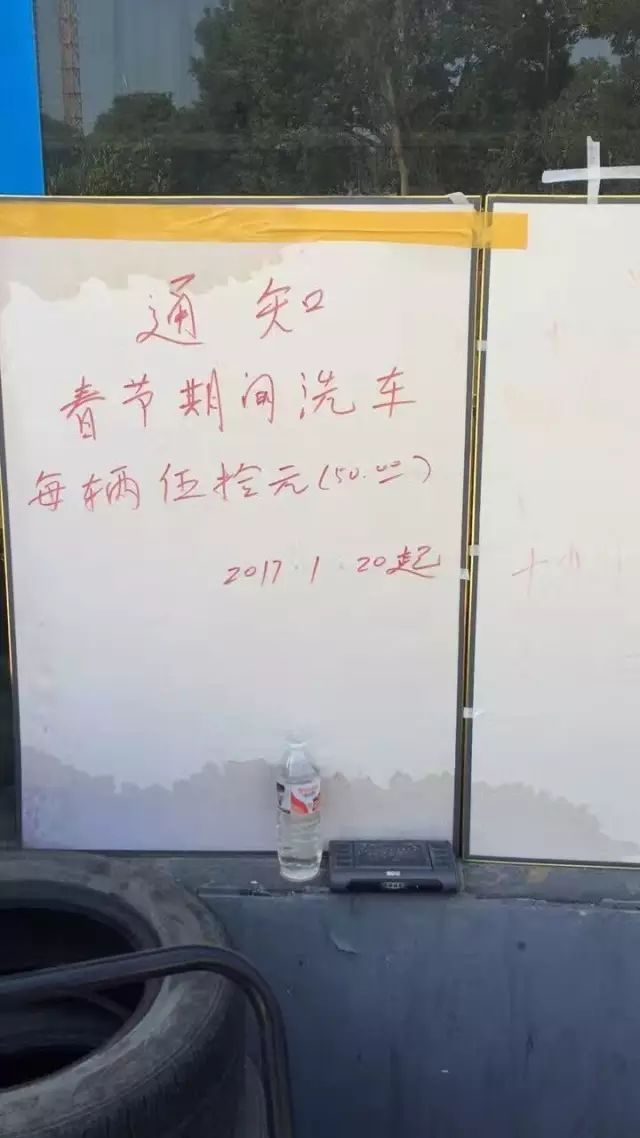 通知
春节期间洗车
每辆伍拾元(50.00)
2017.1.20起